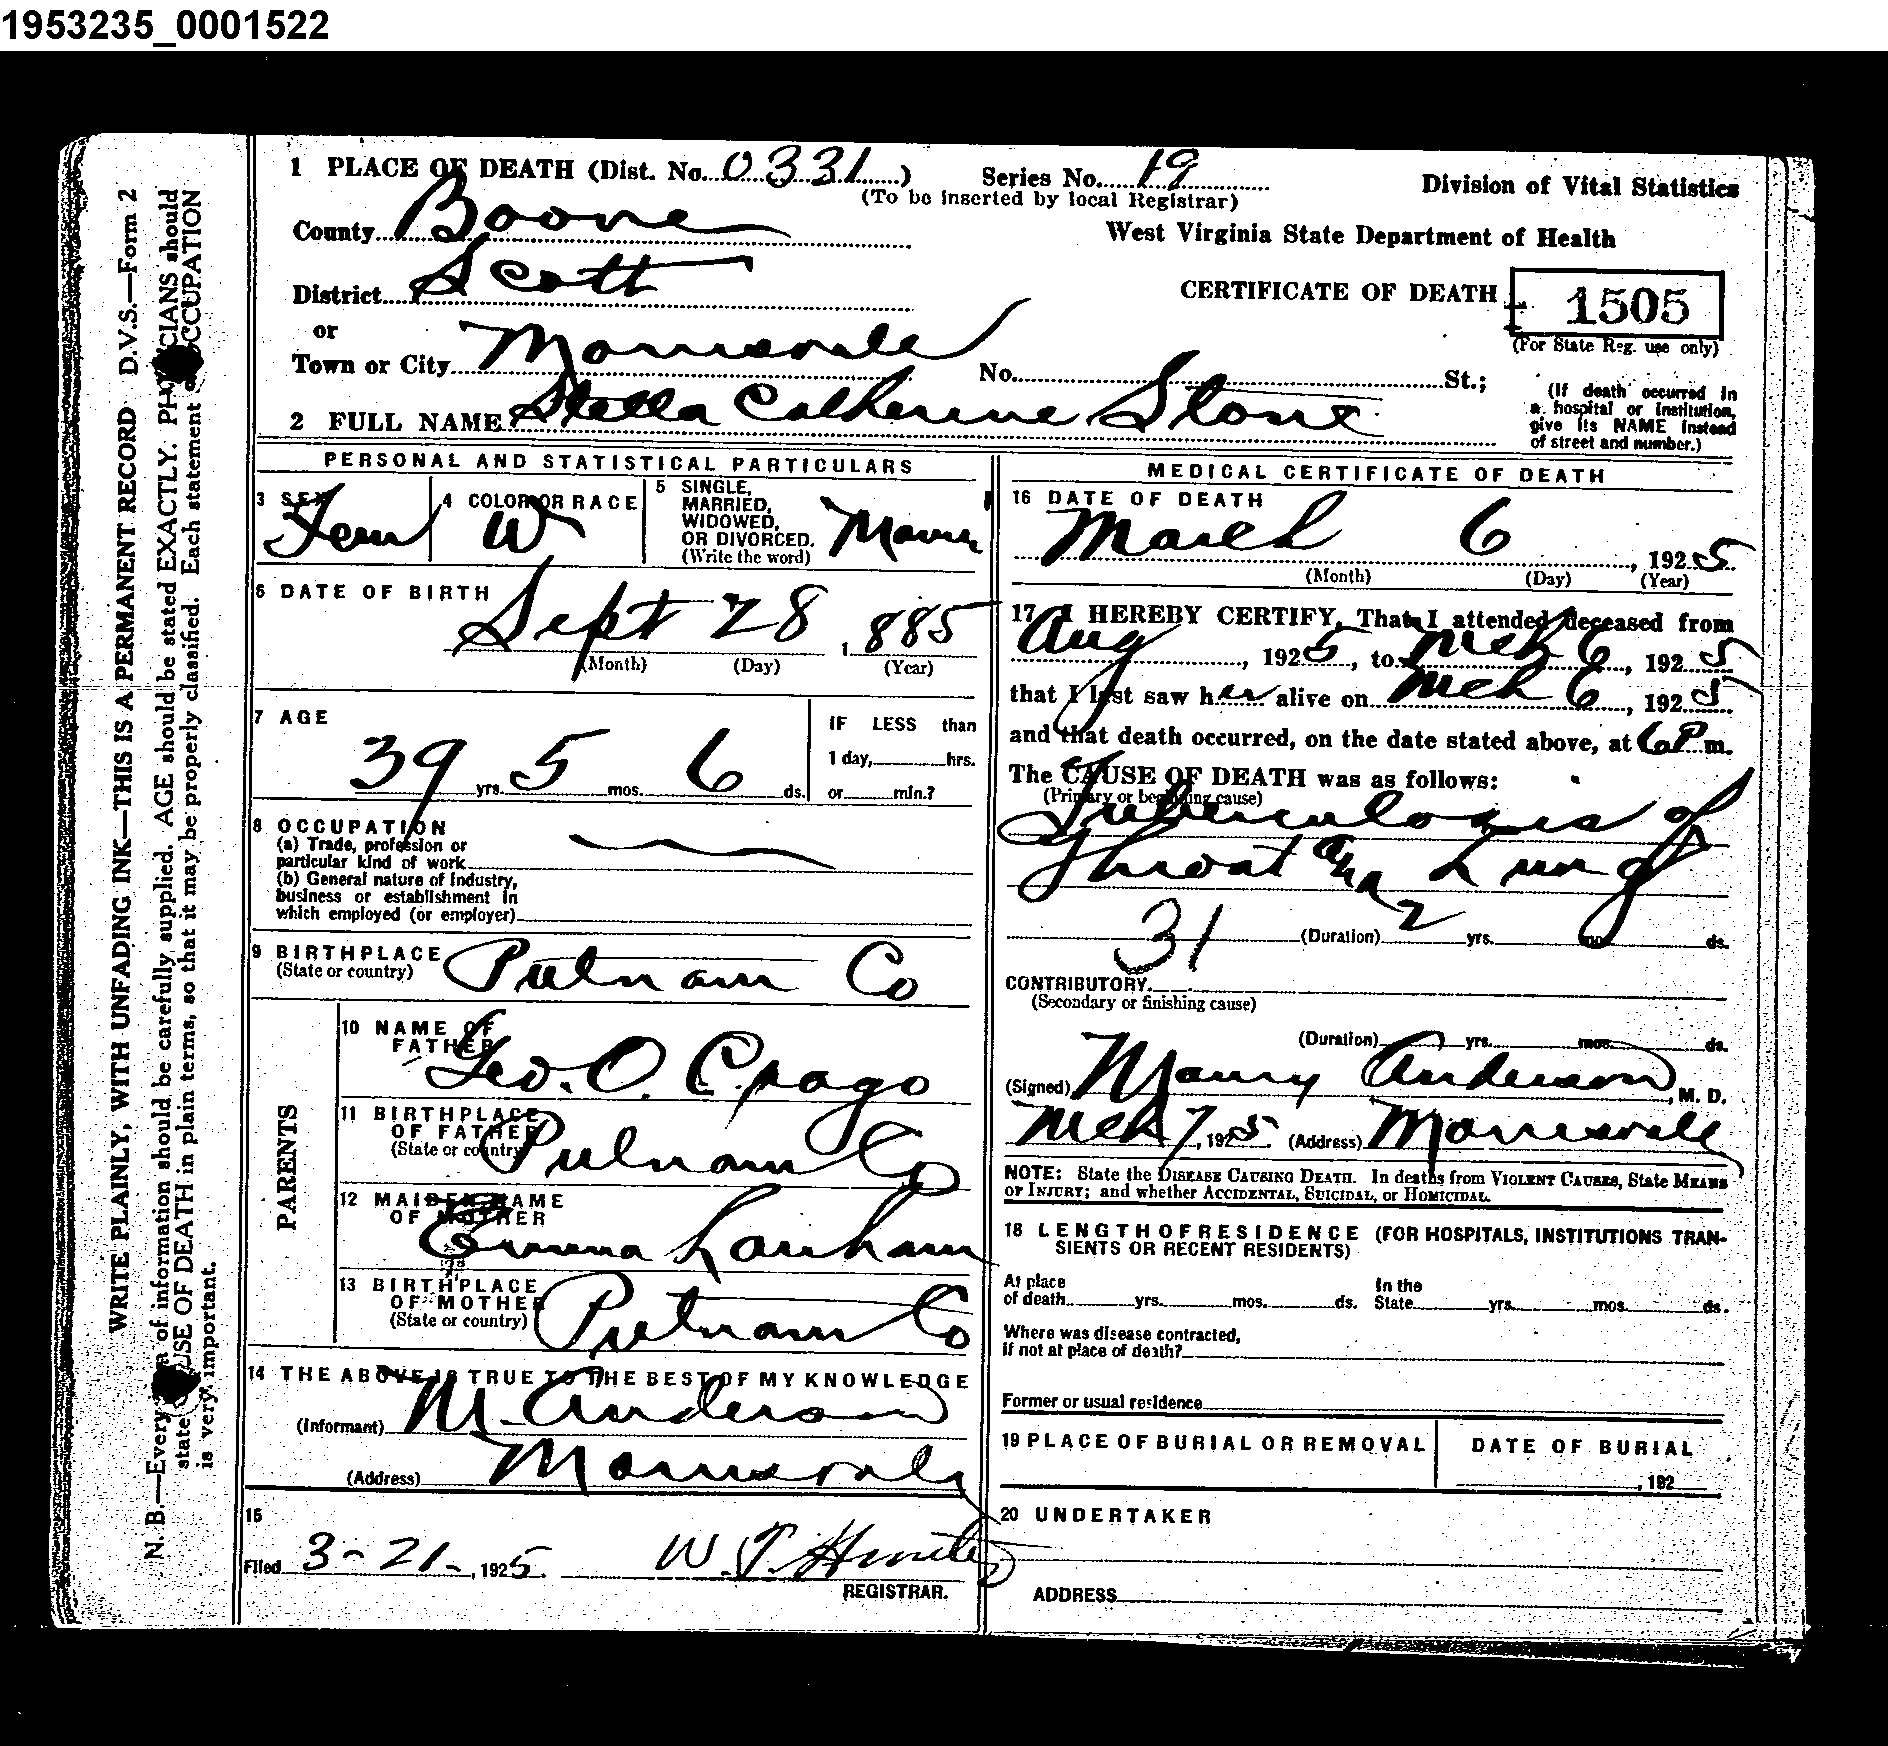 1953235_0001522
1 PLACE OF DEATH (Dist. No. 0331) Series No. 19 Division of Vital Statistics
(To be inserted by local Registrar)
County Boone West Virginia State Department of Health
District Scott CERTIFICATE OF DEATH 1505
or (For State Reg. use only)
Town or City Morrisvale No. St.;
(If death occurred in a hospital or institution, give its NAME instead of street and number.)
2 FULL NAME Stella Catherine Stone
PERSONAL AND STATISTICAL PARTICULARS
3 SEX Fem
4 COLOR OR RACE W
5 SINGLE, MARRIED, WIDOWED, OR DIVORCED. (Write the word) Marri
6 DATE OF BIRTH Sept 28 1885
(Month) (Day) (Year)
7 AGE
39 yrs. 5 mos. 6 ds.
IF LESS than
1 day, hrs.
or min.?
8 OCCUPATION
(a) Trade, profession or
particular kind of work
(b) General nature of Industry,
business or establishment in
which employed (or employer)
9 BIRTHPLACE Putnam Co
(State or country)
PARENTS
10 NAME OF FATHER Geo. O. Cpago
11 BIRTHPLACE OF FATHER Putnam Co
(State or country)
12 MAIDEN NAME OF MOTHER Emma Lanham
13 BIRTHPLACE OF MOTHER Putnam Co
(State or country)
14 THE ABOVE IS TRUE TO THE BEST OF MY KNOWLEDGE
(Informant) M. Anderson
(Address) Morrisvale
15
Filed 3-21-, 1925. W. T. Hunter
REGISTRAR.
MEDICAL CERTIFICATE OF DEATH
16 DATE OF DEATH
March 6, 1925
(Month) (Day) (Year)
17 I HEREBY CERTIFY, That I attended deceased from
Aug, 1925, to Mch 6, 1925
that I last saw her alive on Mch 6, 1925
and that death occurred, on the date stated above, at 6 P. m.
The CAUSE OF DEATH was as follows:
(Primary or beginning cause)
Tuberculosis of
Throat and Lung
31 (Duration) 2 yrs. mos. ds.
CONTRIBUTORY
(Secondary or finishing cause)
(Duration) yrs. mos. ds.
(Signed) Maury Anderson, M. D.
Mch 7, 1925 (Address) Morrisvale
NOTE: State the DISEASE CAUSING DEATH. In deaths from VIOLENT CAUSES, State MEANS
OF INJURY; and whether ACCIDENTAL, SUICIDAL, or HOMICIDAL.
18 LENGTH OF RESIDENCE (FOR HOSPITALS, INSTITUTIONS TRAN-
SIENTS OR RECENT RESIDENTS)
At place of death yrs. mos. ds. In the State yrs. mos. ds.
Where was disease contracted,
if not at place of death?
Former or usual residence
19 PLACE OF BURIAL OR REMOVAL DATE OF BURIAL
, 192
20 UNDERTAKER
ADDRESS
WRITE PLAINLY, WITH UNFADING INK—THIS IS A PERMANENT RECORD D.V.S.—Form 2
N. B.—Every of information should be carefully supplied. AGE should be stated EXACTLY. PHYSICIANS should
state CAUSE OF DEATH in plain terms, so that it may be properly classified. Each statement OCCUPATION
is very important.